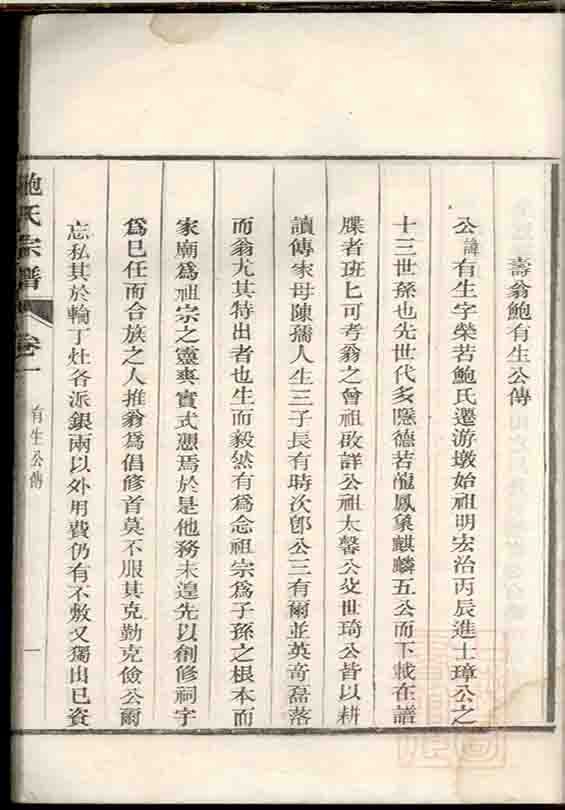 壽翁鮑有生公傳
公諱有生字榮若鮑氏遷游墩始祖明宏治丙辰進士璋公之
十三世孫也先世代多隱德若龍鳳象麒麟五公而下載在譜
牒者班匕可考翁之曾祖啟詳公祖太馨公父世琦公皆以耕
讀傳家母陳孺人生三子長有時次郎公三有爾並英奇磊落
而翁尤其特出者也生而毅然有為念祖宗為子孫之根本而
家廟為祖宗之靈爽實式憑焉於是他務未遑先以創修祠宇
為已任而合族之人推翁為倡修首莫不服其克勤克儉公爾
忘私其於輪丁灶各派銀兩以外用費仍有不敷又獨出已資
鮑氏宗譜 卷一 有生公傳 一